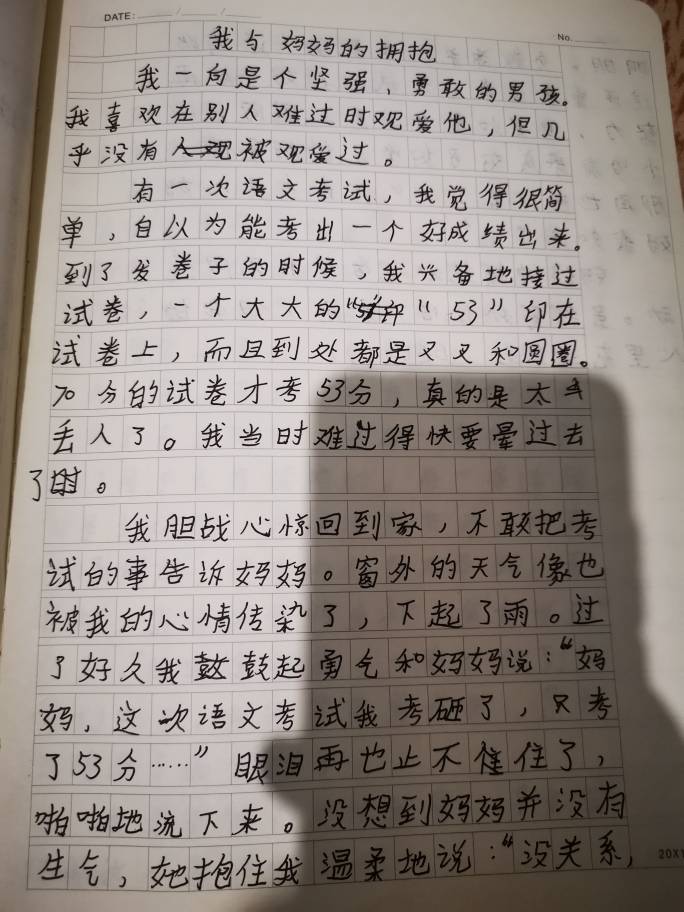 DATE: / /
No.
我与妈妈的拥抱
我一向是个坚强，勇敢的男孩。
我喜欢在别人难过时观爱他，但几
乎没有被观爱过。
有一次语文考试，我觉得很简
单，自以为能考出一个好成绩出来。
到了发卷子的时候，我兴备地接过
试卷，一个大大的“53”印在
试卷上，而且到处都是叉叉和圆圈。
70分的试卷才考53分，真的是太
丢人了。我当时难过得快要晕过去
了。
我胆战心惊回到家，不敢把考
试的事告诉妈妈。窗外的天气像也
被我的心情传染了，下起了雨。过
了好久我鼓起勇气和妈妈说：“妈
妈，这次语文考试我考砸了，只考
了53分……”眼泪再也止不住了，
啪啪地流下来。没想到妈妈并没有
生气，她抱住我温柔地说：“没关系，